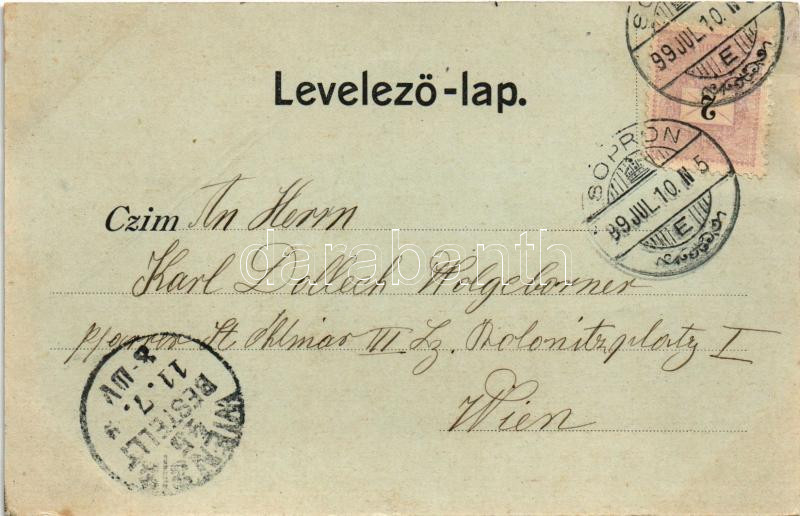 SOPRON
99 JUL. 10. N 5
E
2
Levelező-lap.
SOPRON
99 JUL. 10. N 5
E
Czim An Herrn
darabanth.com
Karl Dollech Wolgeborner
Pfarrer St. Othmar III Lz. Kolonitzplatz I
Wien
WIEN
BESTELLT
11. 7. 9
8-½V